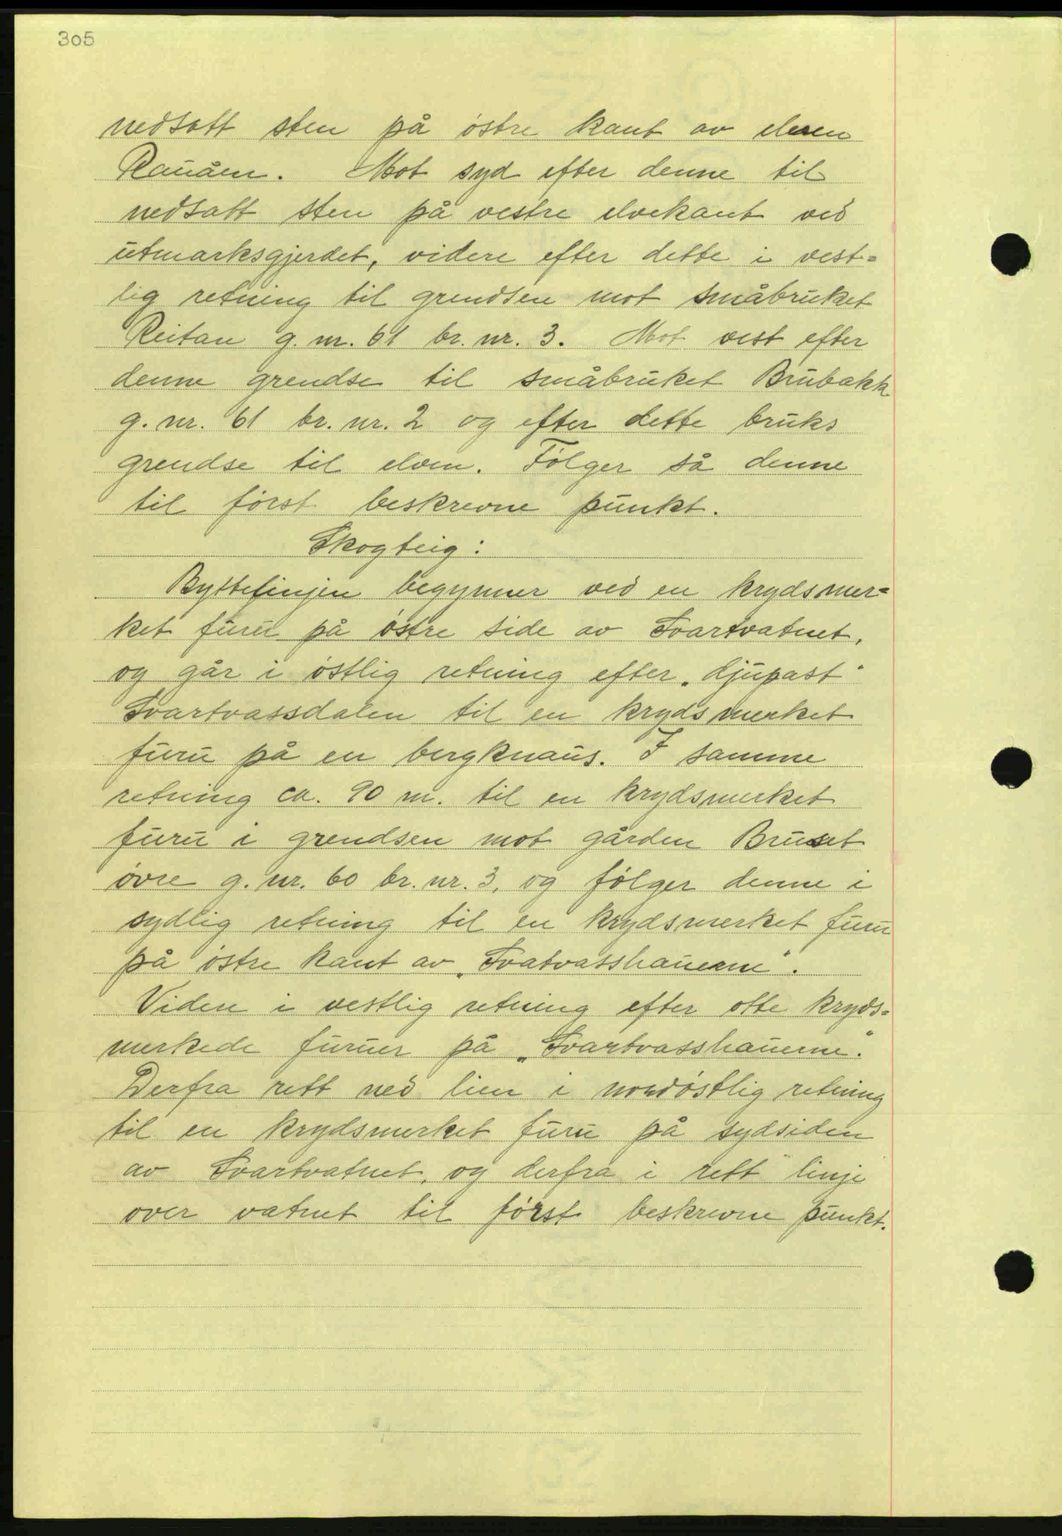 305
nedsatt sten på østre kant av elven
Rauåen. Mot syd efter denne til
nedsatt sten på vestre elvekant ved
utmarksgjerdet, videre efter dette i vest=
lig retning til grendsen mot småbruket
Reitan g. nr. 61 br. nr. 3. Mot vest efter
denne grendse til småbruket Brubakk
g. nr. 61 br. nr. 2 og efter dette bruks
grendse til elven. Følger så denne
til først beskrevne punkt.
Skogteig:
Byttelinjen begynner ved en krydsmer=
ket furu på østre side av Svartvatnet,
og går i østlig retning efter „djupast"
Svartvassdalen til en krydsmerket
furu på en bergknaus. I samme
retning ca. 90 m. til en krydsmerket
furu i grendsen mot gården Bruset
øvre g. nr. 60 br. nr. 3, og følger denne i
sydlig retning til en krydsmerket furu
på østre kant av „Svatvasshauene".
Videre i vestlig retning efter otte kryds=
merkede furuer på „Svartvasshauene".
Derfra rett ned lien i nordøstlig retning
til en krydsmerket furu på sydsiden
av Svartvatnet, og derfra i rett linje
over vatnet til først beskrevne punkt.